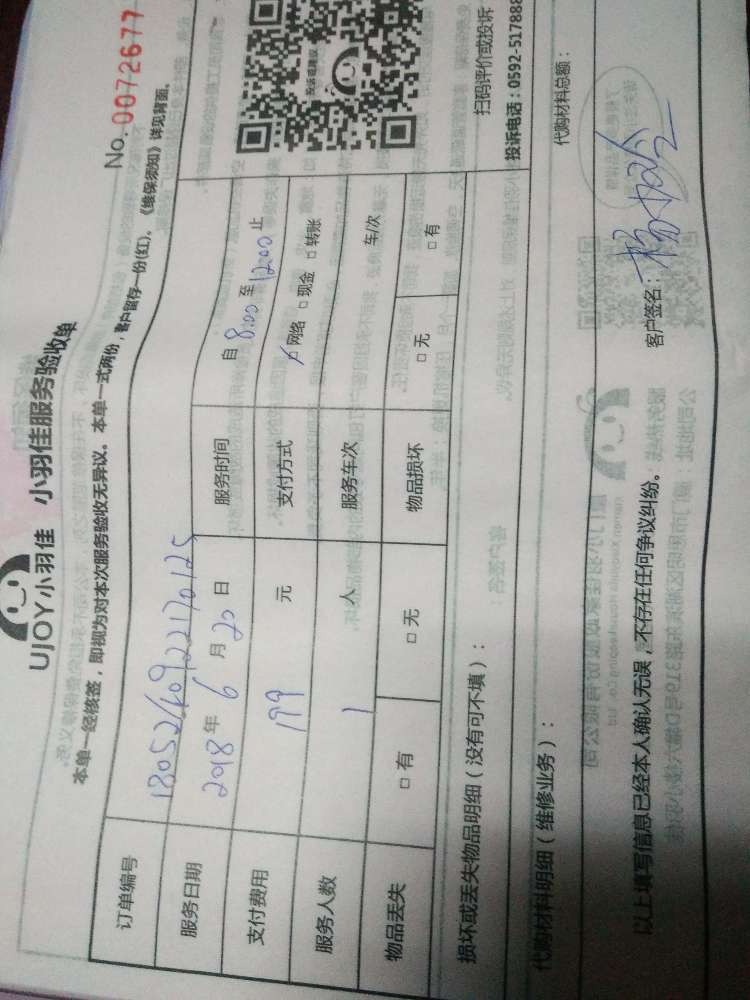 UJOY小羽佳 小羽佳服务验收单
No.0072677
本单一经核签，即视为对本次服务验收无异议。本单一式两份，客户留存一份(红)，《维保须知》详见背面。
订单编号
服务日期 2018年6月20日 服务时间 自8:00至12:00止
支付费用 199元 支付方式 □网络 □现金 □转账
服务人数 1人 服务车次 车/次
物品丢失 □有 □无 物品损坏 □无 □有
损坏或丢失物品明细（没有可不填）：
扫码评价或投诉
投诉电话：0592-517888
代购材料明细（维修业务）：
代购材料总额：
以上填写信息已经本人确认无误，不存在任何争议纠纷。 客户签名：